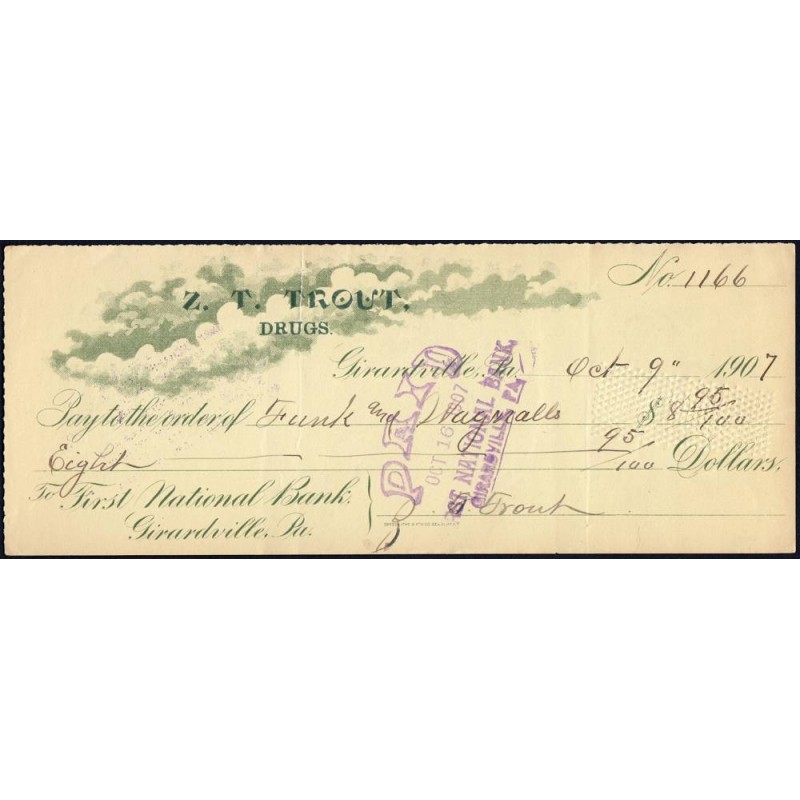 No. 1166
Z. T. TROUT,
DRUGS.
Girardville, Pa. Oct 9" 1907
Pay to the order of Funk and Wagnalls $8 95/100
Eight 95/100 Dollars,
To First National Bank,
Girardville, Pa.
Z. T. Trout
PAID
OCT 16 1907
1ST NATIONAL BANK
GIRARDVILLE, PA.